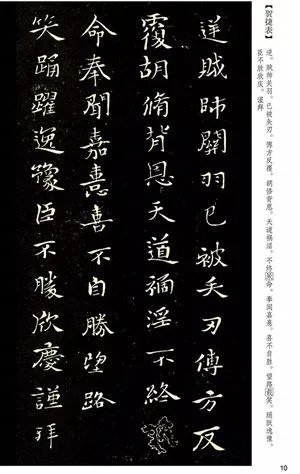 【贺捷表】
逆。贼帅关羽。已被矢刃。傅方反覆。胡修背恩。天道祸淫。不终厥命。奉闻嘉熹。喜不自胜。望路载笑。踊跃逸豫。
臣不胜欣庆。谨拜
逆賊帥關羽已被矢刃傅方反
覆胡脩背恩天道禍淫不終
命奉聞嘉憙喜不自勝望路
笑踊躍逸豫臣不勝欣慶謹拜
10